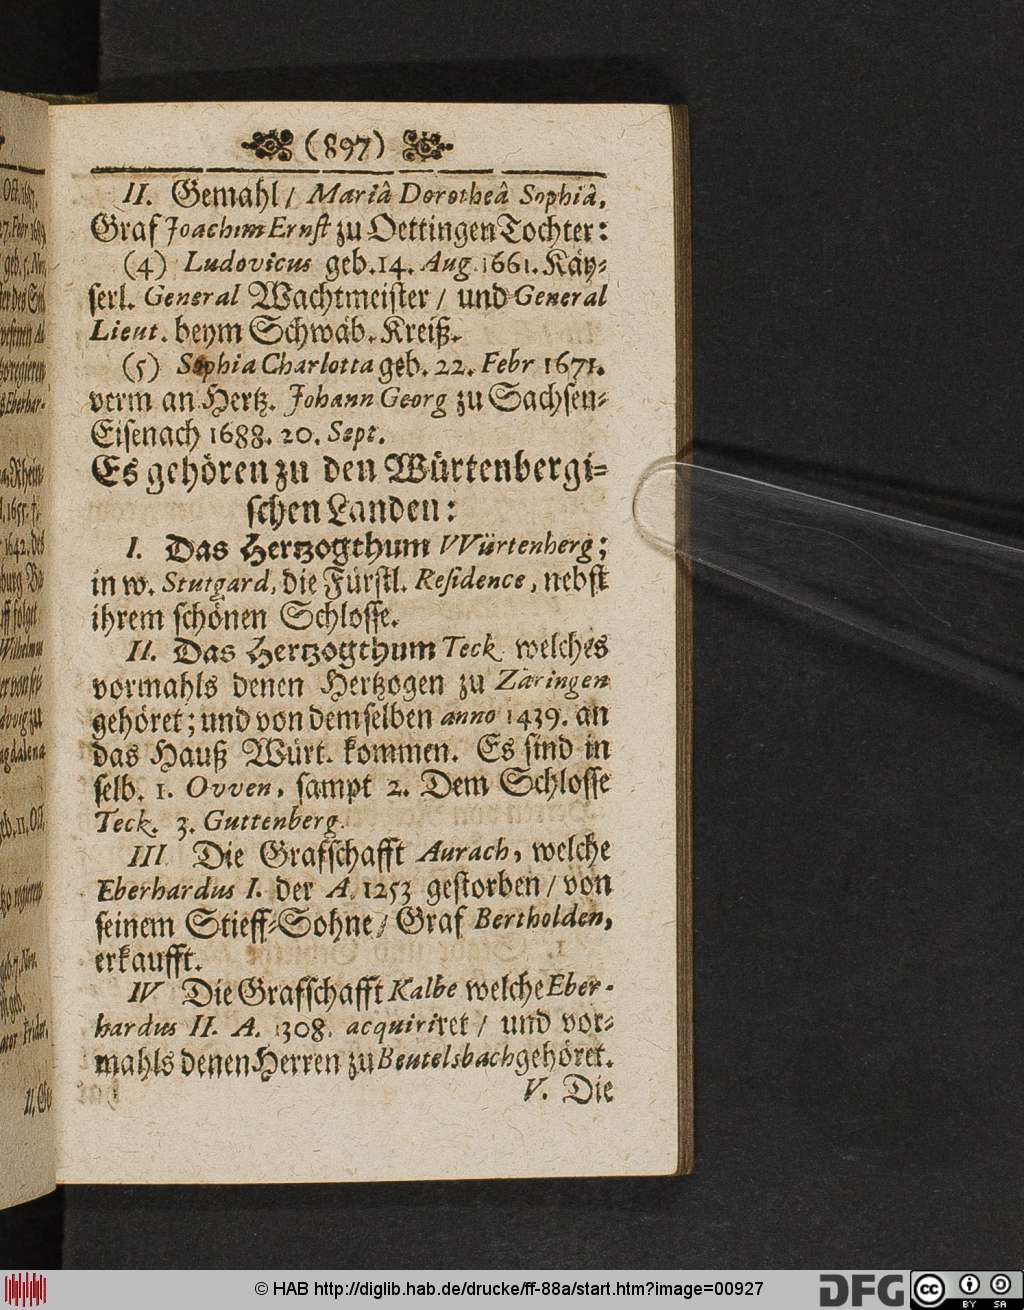 (897)
II. Gemahl / Mariâ Dorotheâ Sophiâ,
Graf Joachim Ernst zu Oettingen Tochter:
(4) Ludovicus geb. 14. Aug. 1661. Käy-
serl. General Wachtmeister / und General
Lieut. beym Schwäb. Kreiß.
(5) Sophia Charlotta geb. 22. Febr 1671.
verm an Hertz. Johann Georg zu Sachsen-
Eisenach 1688. 20. Sept.
Es gehören zu den Würtenbergi-
schen Landen:
I. Das Hertzogthum VVürtenberg;
in w. Stutgard, die Fürstl. Residence, nebst
ihrem schönen Schlosse.
II. Das Hertzogthum Teck welches
vormahls denen Hertzogen zu Zäringen
gehöret; und von demselben anno 1439. an
das Hauß Würt. kommen. Es sind in
selb. 1. Ovven, sampt 2. Dem Schlosse
Teck. 3. Guttenberg.
III Die Grafschafft Aurach, welche
Eberhardus I. der A. 1253 gestorben / von
seinem Stieff-Sohne / Graf Bertholden,
erkaufft.
IV Die Grafschafft Kalbe welche Eber-
hardus II. A. 1308. acquiriret / und vor-
mahls denen Herren zu Beutelsbach gehöret.
V. Die
© HAB http://diglib.hab.de/drucke/ff-88a/start.htm?image=00927
DFG
cc
BY SA